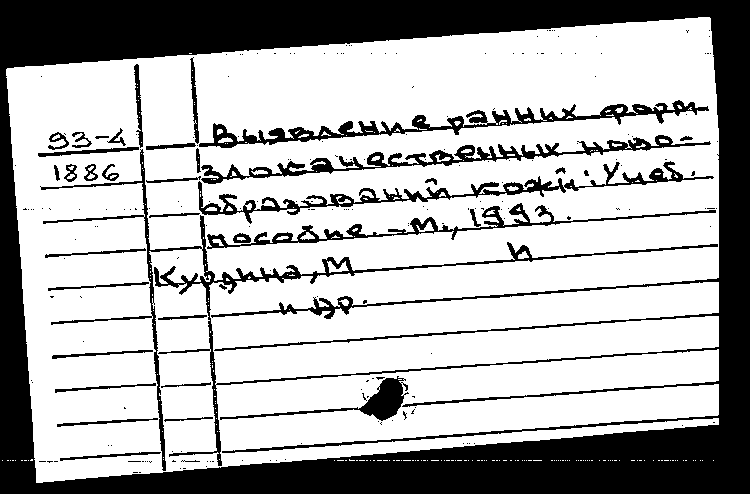 93-4 Выявление ранних форм
1886 злокачественных ново-
образований кожи: Учеб.
пособие. - М., 1993.
Курдина, М И
и др.